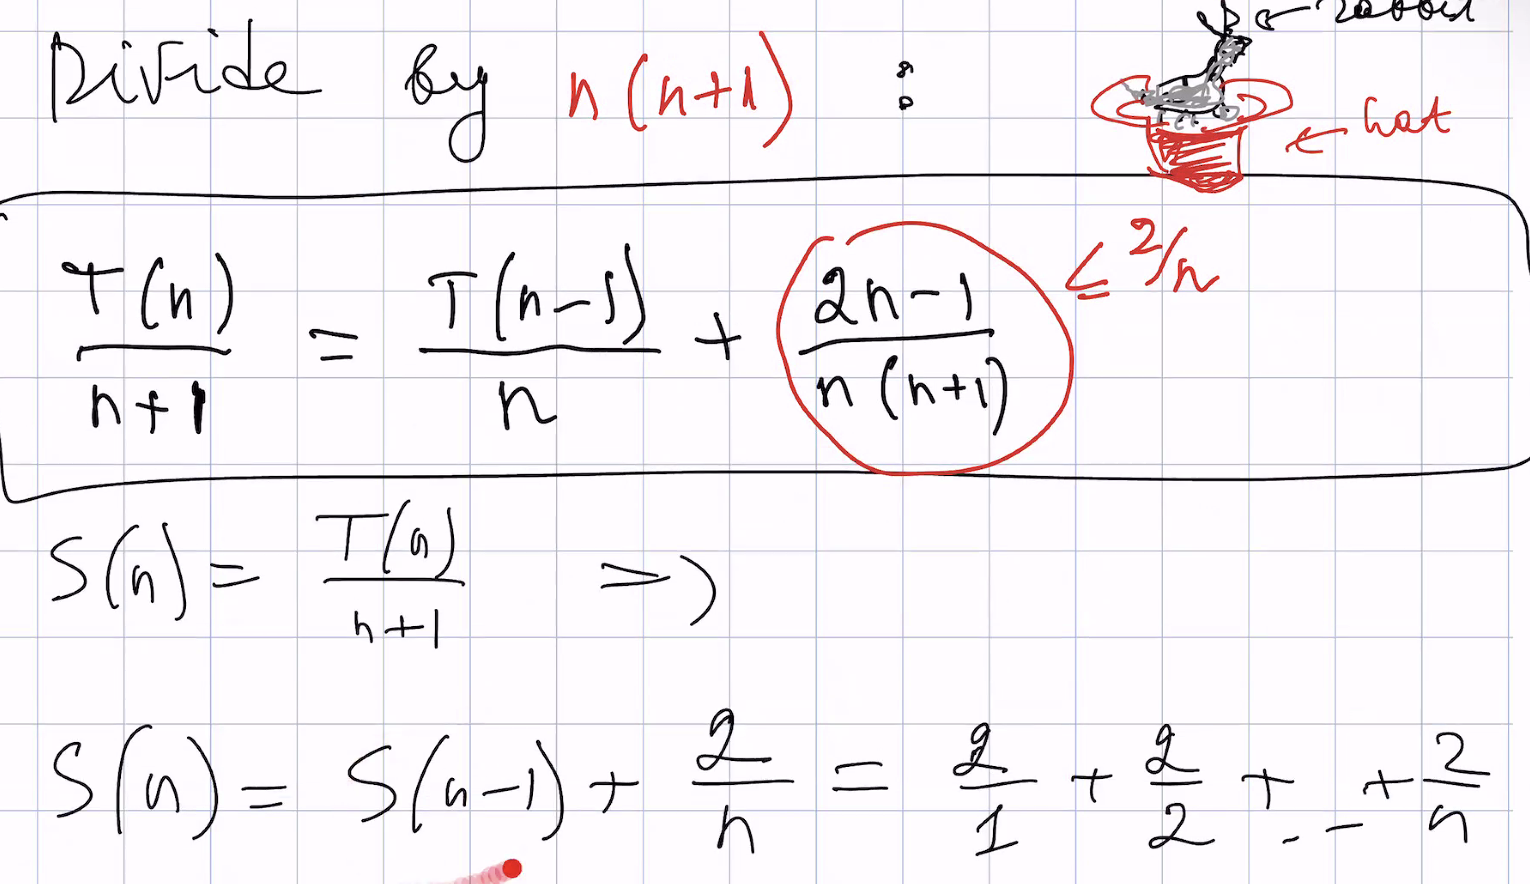 Divide by n(n+1) :
← rabbit
← hat
T(n)/(n+1) = T(n-1)/n + (2n-1)/(n(n+1)) ≤ 2/n
S(n) = T(n)/(n+1) =>
S(n) = S(n-1) + 2/n = 2/1 + 2/2 + ... + 2/n